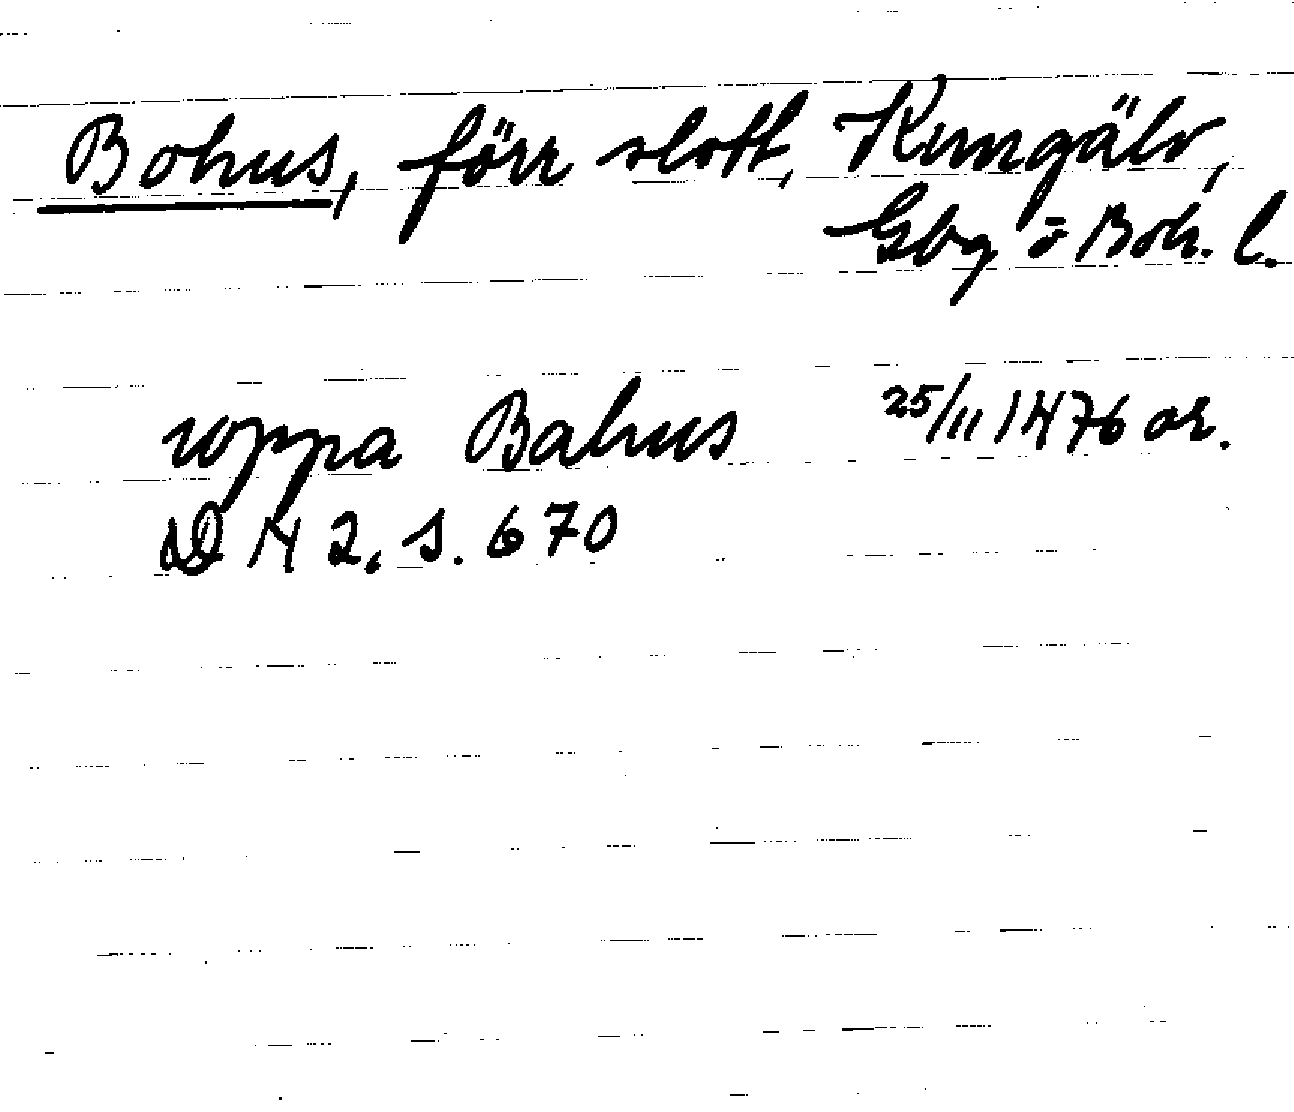 Bohus, förr slott, Kungälv,
Gbg o Boh. l.
uppa Bahus 25/11 1476 or.
DN 2, s. 670